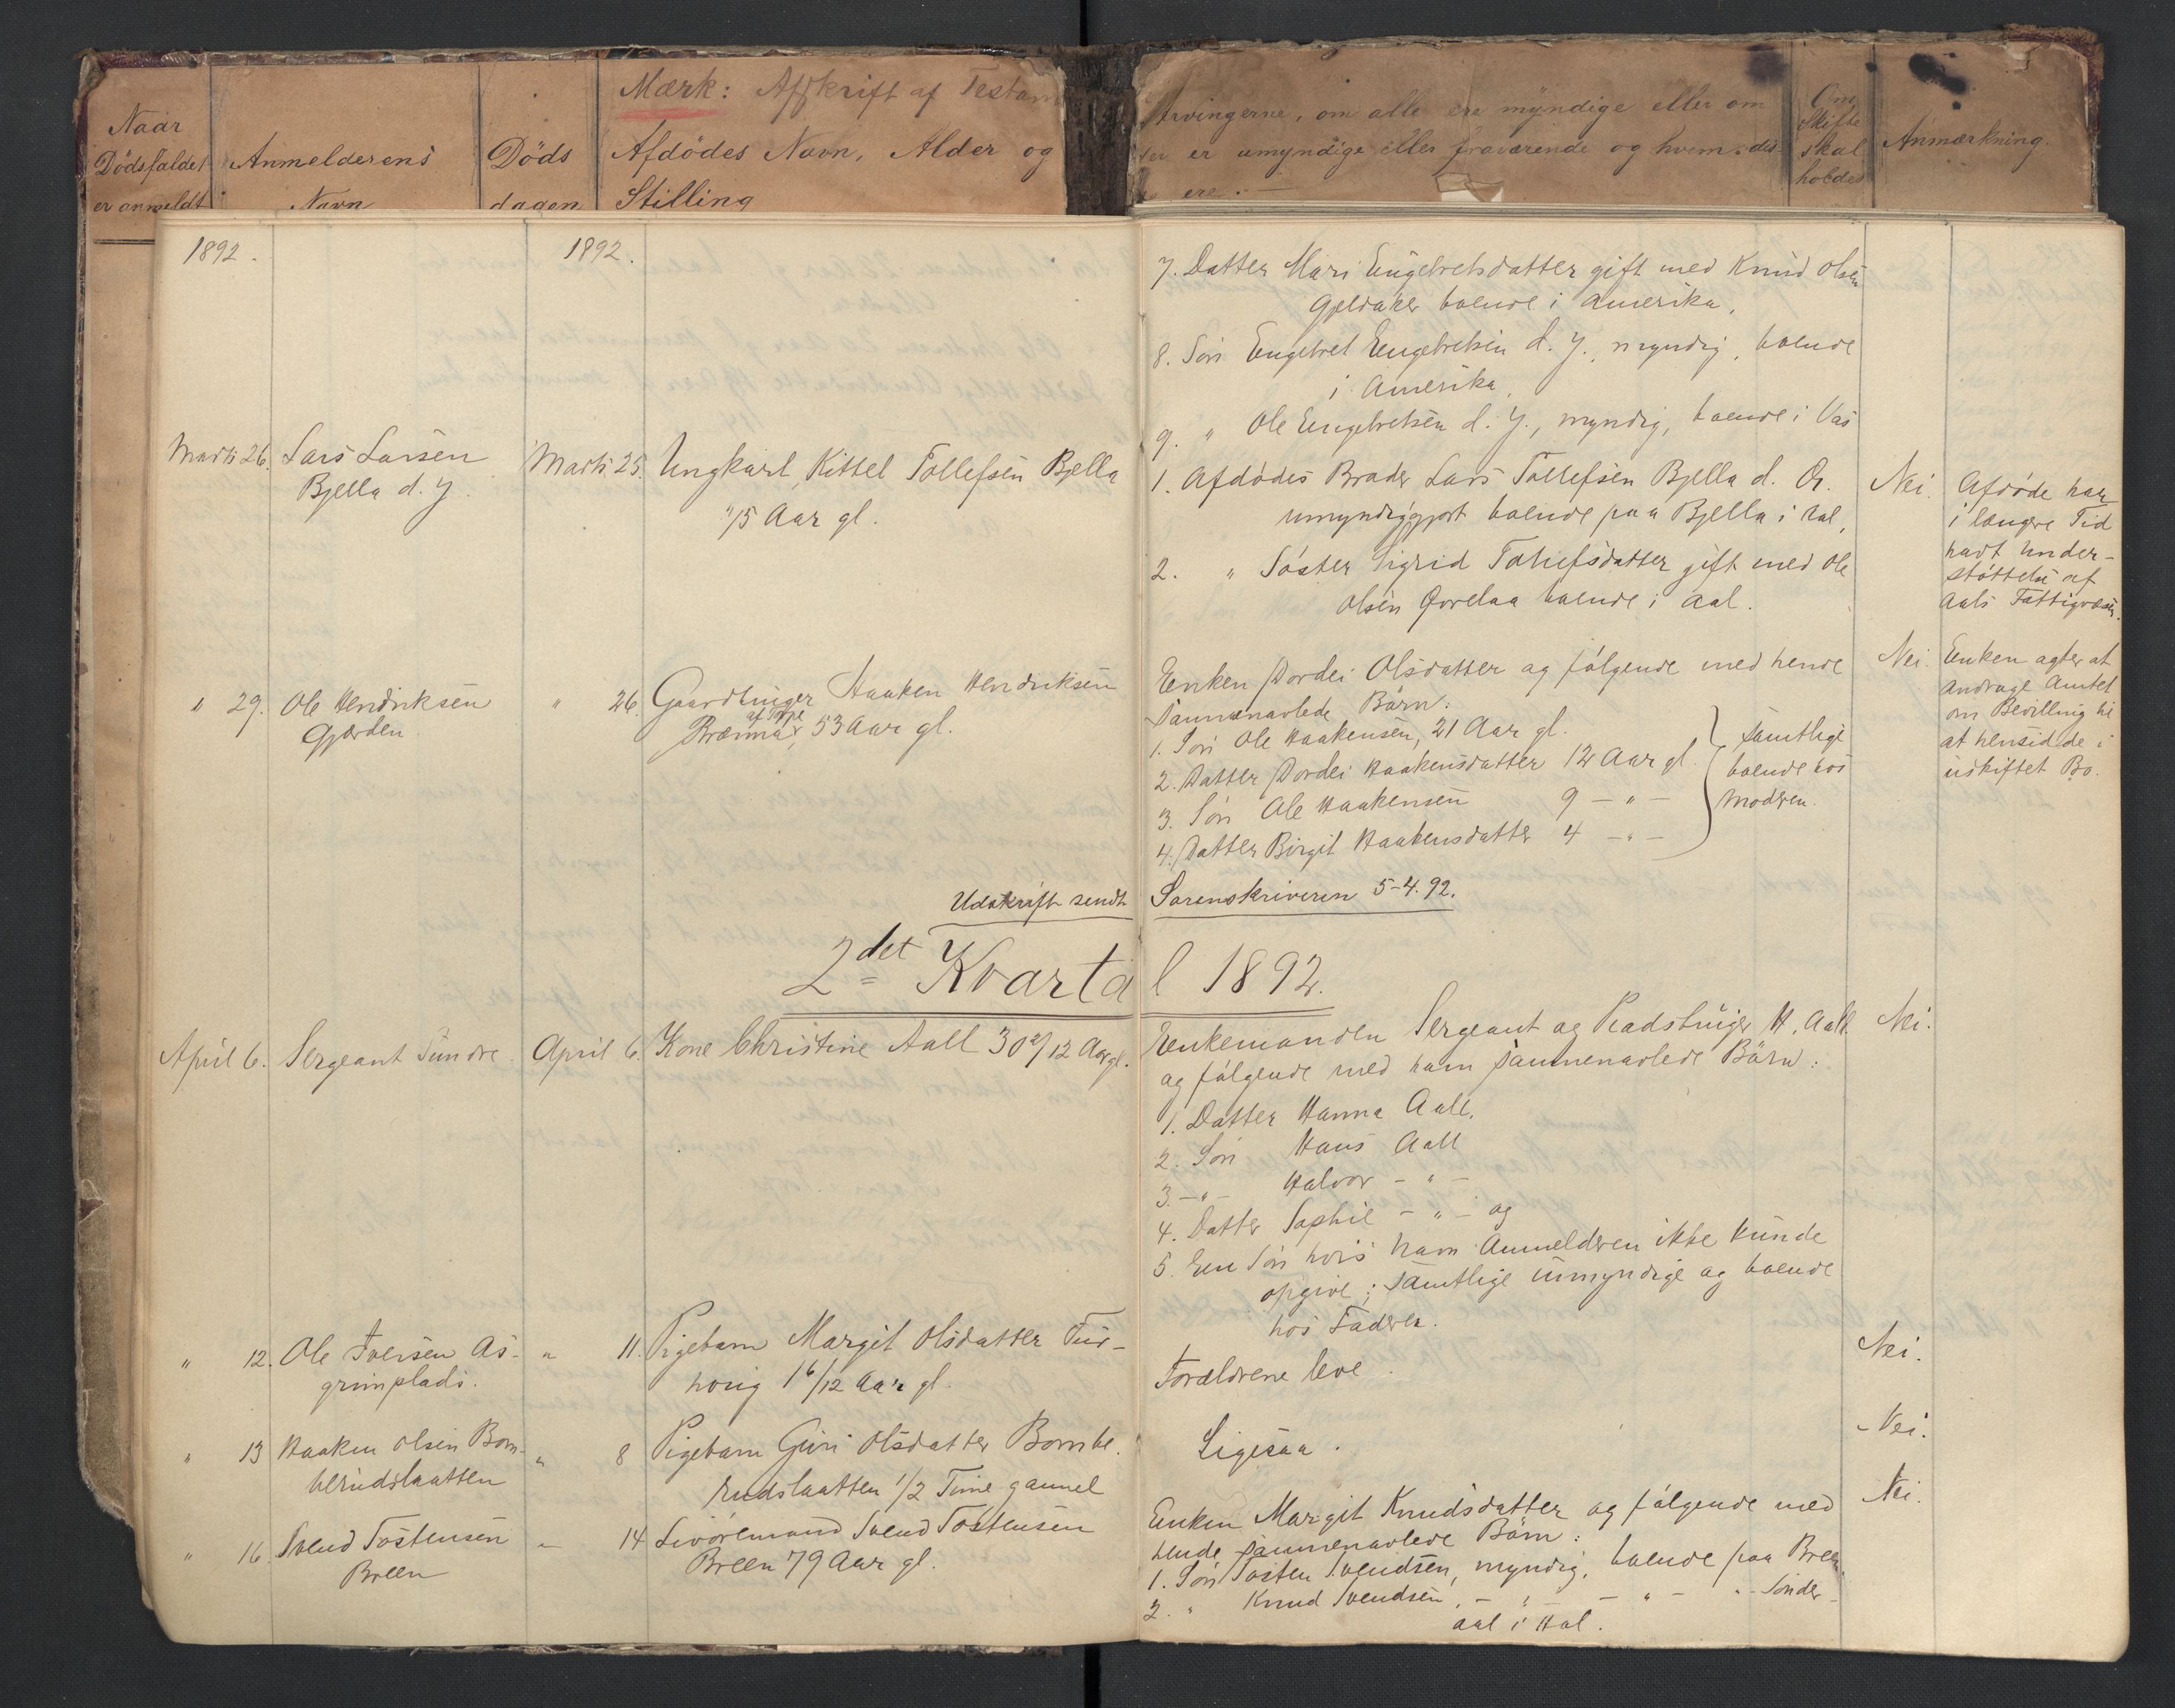 Mærk: Afskrift af Testam
Naar
Dödsfaldet
er anmeldt
Anmelderens
Navn
Döds
dagen
Afdödes Navn, Alder og
Stilling
Arvingerne, om alle ere myndige eller om
er umyndige eller fraværende og hvem dis
ere.
Om
Skifte
skal
holdes
Anmærkning.
1892.
1892.
7. Datter Mari Engebretsdatter gift med Knud Olsen
Gjeldaker boende i Amerika.
8. Søn Engebret Engebretsen d. y., myndig, boende
i Amerika,
9. " Ole Engebretsen d. y., myndig, boende i Vas
Marts 26. Lars Larsen
Bjella d. y.
Marts 25. Ungkarl, Kittel Tollefsen Bjella
75 Aar gl.
1. Afdödes Broder Lars Tollefsen Bjella d. Æ.
umyndiggjort boende paa Bjella i Aal,
2. " Söster Sigrid Tollefsdatter gift med Ole
Olsen Qvrelaa boende i Aal.
Nei.
Afdöde har
i længre Tid
havt under-
støttelse af
Aals Fattigvæsen.
" 29. Ole Hendriksen
Gjerden
" 26. Gaardbruger Haaken Hendriksen
Brænna af Torpe, 53 Aar gl.
Enken Dordei Olsdatter og følgende med hende
sammenavlede Börn:
1. Søn Ole Haakensen, 21 Aar gl.
2. Datter Dordei Haakensdatter 12 Aar gl.
3. Søn Ole Haakensen 9 – " –
4. Datter Birgit Haakensdatter 4 – " –
Samtlige
boende hos
Moderen.
Nei.
Enken agter at
andrage Amtet
om Bevilling til
at hensidde i
uskiftet Bo.
Udskrift sendt Sorenskriveren 5-4.92.
2det Kvartal 1892.
April 6. Sergeant Sundre.
April 6. Kone Christine Aall 30 2/12 Aar gl.
Enkemanden Sergeant og Pladsbruger H. Aall
og følgende med ham sammenavlede Börn:
1. Datter Hanna Aall.
2. Søn Hans Aall
3. – " – Halvor – " –
4. Datter Sophie – " – og
5. Een Søn hvis Navn Anmelderen ikke kunde
opgive; samtlige umyndige og boende
hos Faderen.
Nei.
" 12. Ole Iversen As-
grimplads.
" 11. Pigebarn Margit Olsdatter Tus-
horig 1 6/12 Aar gl.
Forældrene leve.
Nei.
" 13 Haaken Olsen Bom-
berudslaatten
" 8 Pigebarn Guri Olsdatter Bombe-
rudslaatten 1/2 Time gammel
Ligesaa.
Nei.
" 16. Svend Tostensen
Breen
" 14 Livöremand Svend Tostensen
Breen 79 Aar gl.
Enken Margit Knudsdatter og følgende med
hende sammenavlede Börn:
1. Søn Tosten Svendsen, myndig, boende paa Breen.
2. " Knud Svendsen, – " – – " – " Sönder-
aal i Hol.
Nei.